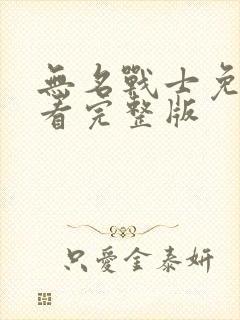 無名戰士免
看完整版
只愛金泰妍